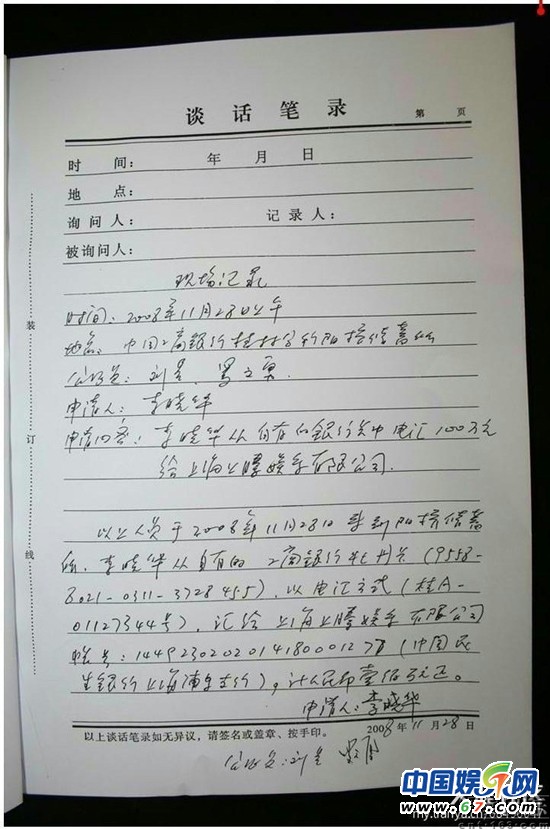 谈话笔录
第 页
时 间： 年 月 日
地 点：
询问人： 记录人：
被询问人：
现场记录
时间：2008年11月28日上午
地点：中国工商银行桂林分行阳桥储蓄所
公证员：刘
申请人：李晓华
申请内容：李晓华从自有的银行卡中电汇100万元
给上海上腾娱乐有限公司.
以上人员于2008年11月28日来到阳桥储蓄
所，李晓华从自有的工商银行牡丹卡（9558-
8021-0311-3728455），以电汇方式（桂A-
01127344号），汇给上海上腾娱乐有限公司
帐号：144923020201418000127（中国民
生银行上海浦东支行），计人民币壹佰万元正。
申请人：李晓华
2008年11月28日
以上谈话笔录如无异议，请签名或盖章、按手印。
公证员：刘
装
订
线
中国娱乐网
www.67.com